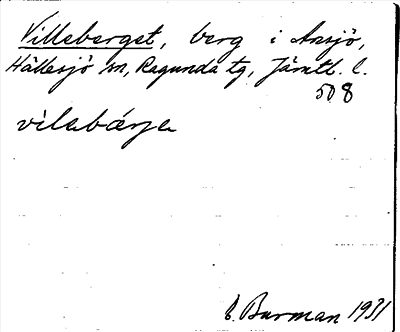 Villeberget, berg i Ansjö,
Hällesjö sn, Ragunda tg, Jämtl. l.
508
vilabärje
E. Burman 1931